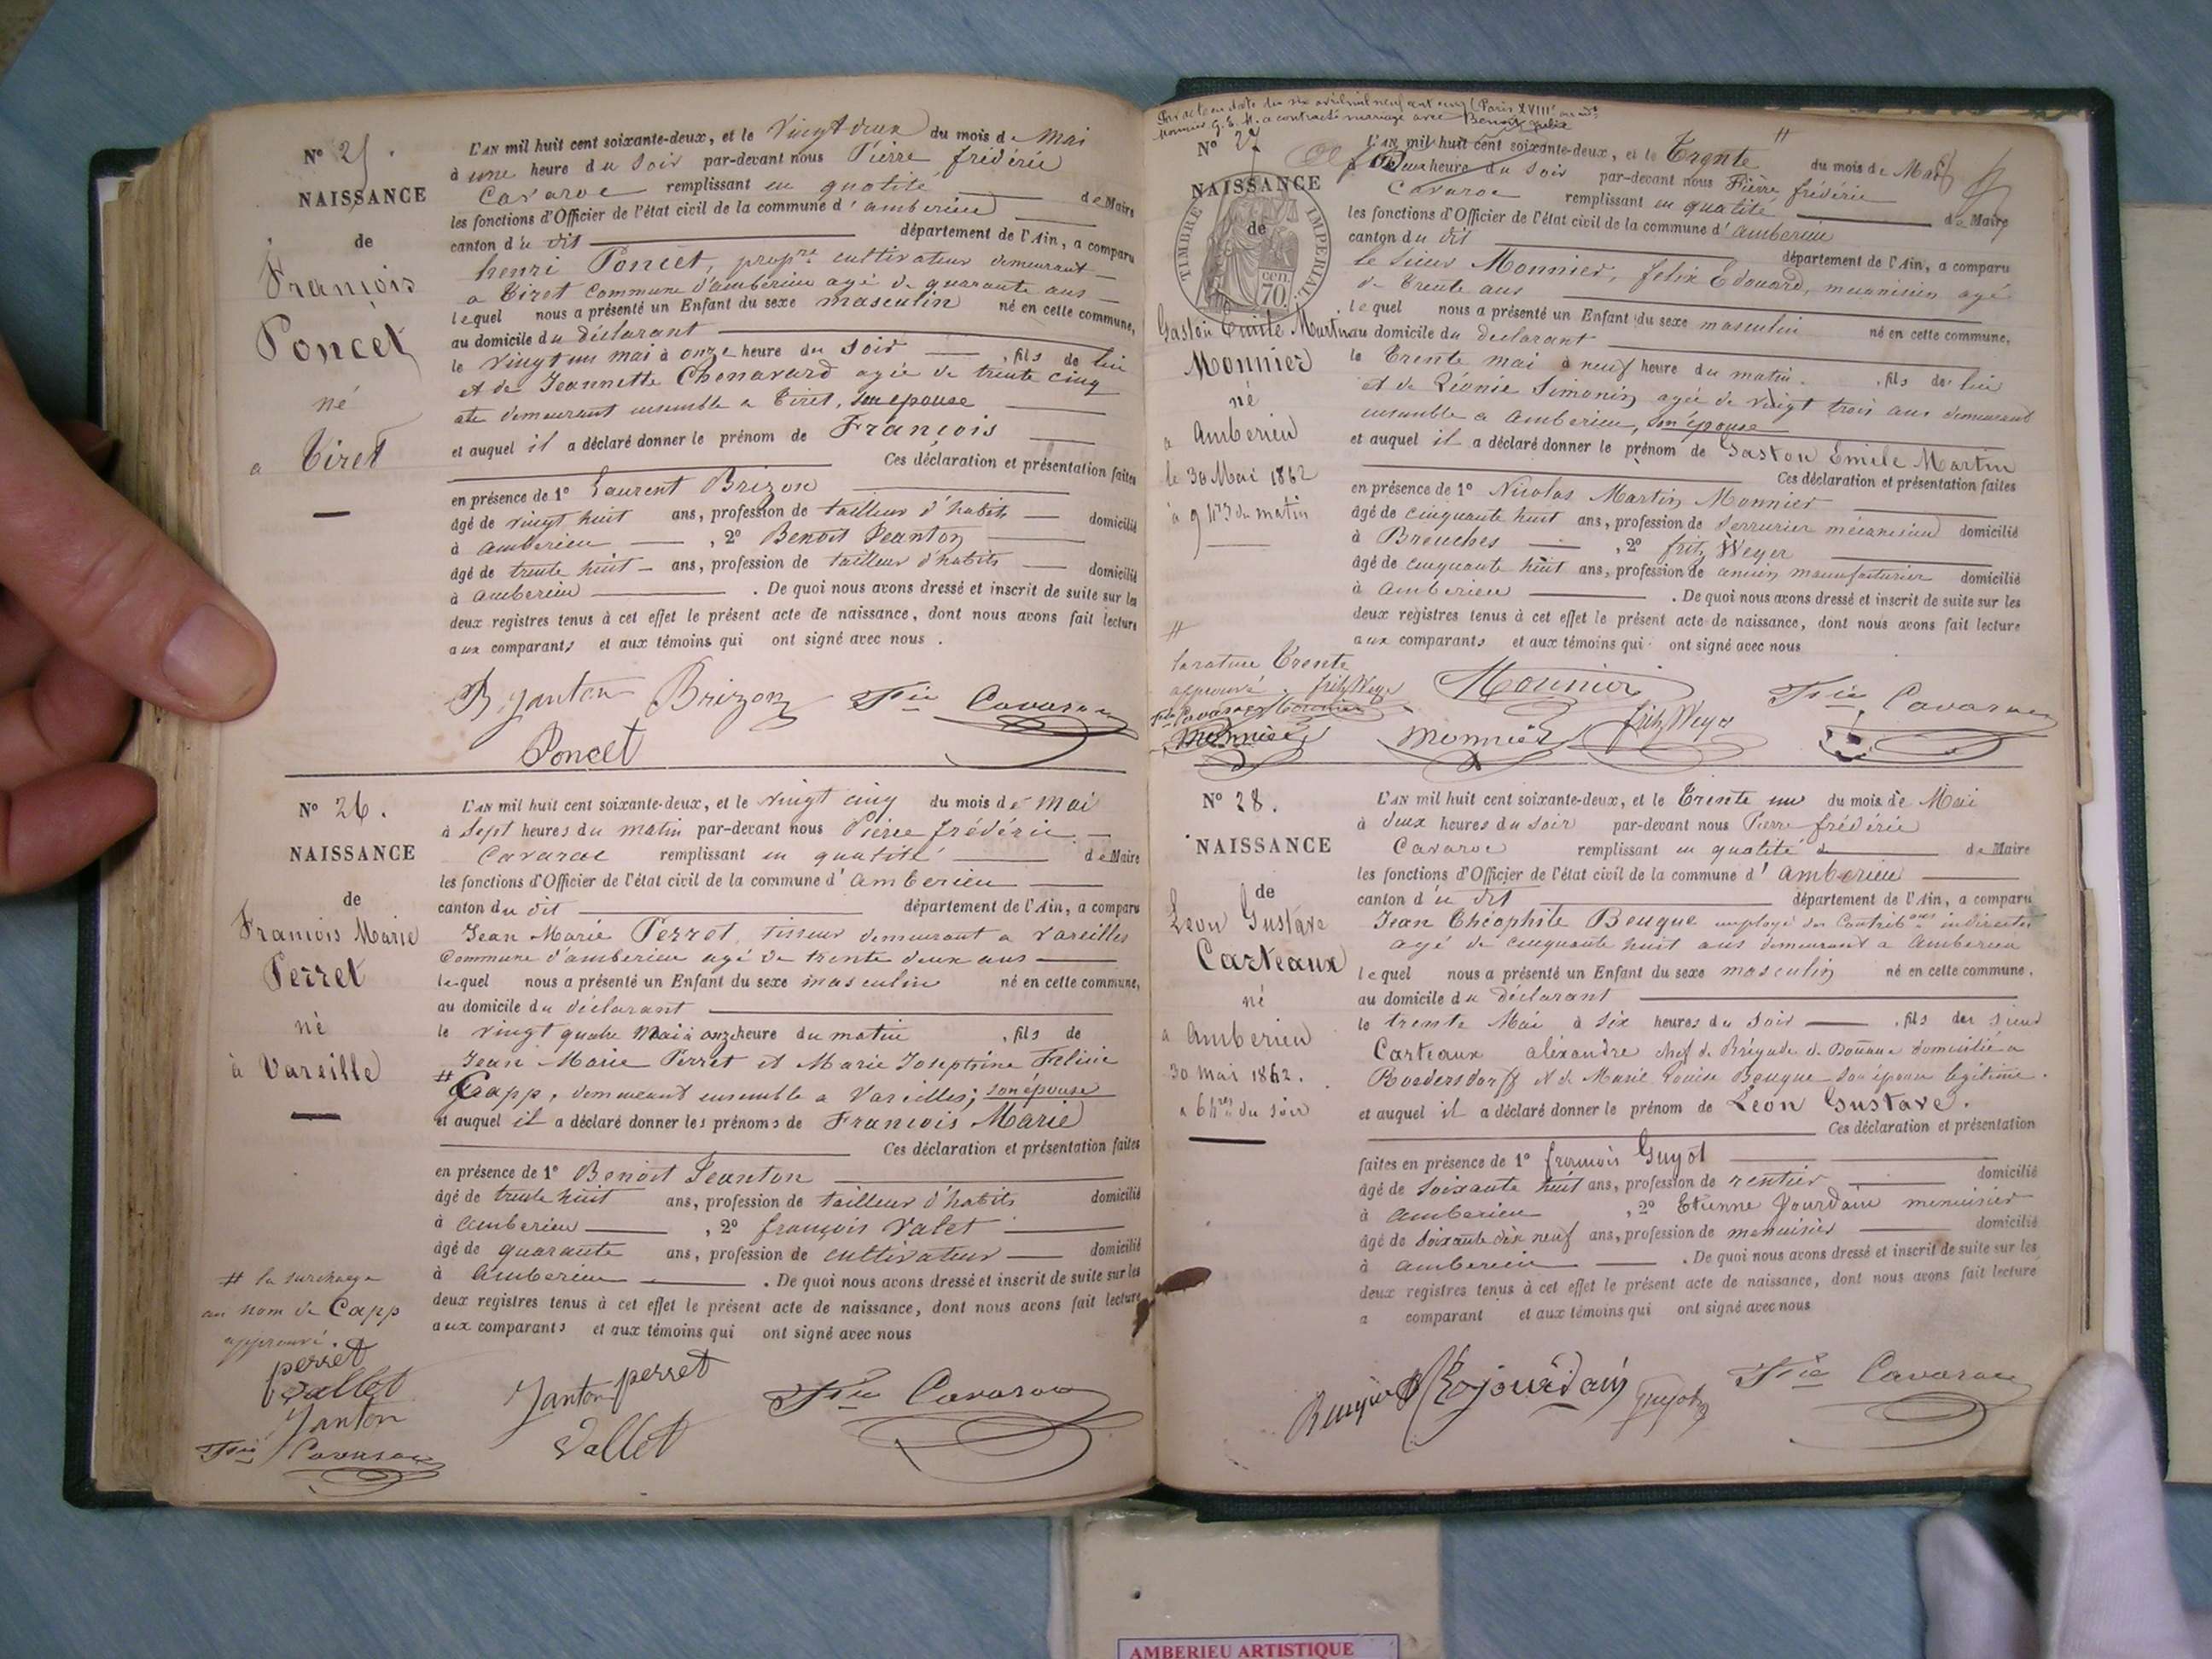 N° 25.
NAISSANCE
de
François
Poncet
né
a Tiret
L'AN mil huit cent soixante-deux, et le vingt deux du mois de Mai
à une heure du soir par-devant nous Pierre frédéric
Cavaroc remplissant en qualité de Maire
les fonctions d'Officier de l'état civil de la commune d'amberieu
canton du dit département de l'Ain, a comparu
henri Poncet, propre cultivateur demeurant
a Tiret Commune d'amberieu agé de quarante ans
lequel nous a présenté un Enfant du sexe masculin né en cette commune,
au domicile du déclarant
le vingt un mai à onze heure du soir , fils de lui
et de Jeannette Chenavard agée de trente cinq
ans demeurant ensemble a Tiret, son epouse
et auquel il a déclaré donner le prénom de François
Ces déclaration et présentation faites
en présence de 1° Laurent Brizon
âgé de vingt huit ans, profession de tailleur d'habits domicilié
à amberieu , 2° Benoit Jeanton
âgé de trente huit ans, profession de tailleur d'habits domicilié
à amberieu . De quoi nous avons dressé et inscrit de suite sur les
deux registres tenus à cet effet le présent acte de naissance, dont nous avons fait lecture
aux comparants et aux témoins qui ont signé avec nous .
B Janton Brizon Fric Cavaroc
Poncet
N° 26.
NAISSANCE
de
François Marie
Perret
né
à Vareille
L'AN mil huit cent soixante-deux, et le vingt cinq du mois de Mai
à sept heures du matin par-devant nous Pierre frédéric
Cavaroc remplissant en qualité de Maire
les fonctions d'Officier de l'état civil de la commune d'amberieu
canton du dit département de l'Ain, a comparu
Jean Marie Perret, tisseur demeurant a vareilles
Commune d'amberieu agé de trente deux ans
lequel nous a présenté un Enfant du sexe masculin né en cette commune,
au domicile du déclarant
le vingt quatre Mai à onze heure du matin , fils de
Jean Marie Perret et Marie Josephine Felicie
# Capp, demeurant ensemble a Vareilles; son épouse
et auquel il a déclaré donner les prénoms de François Marie
Ces déclaration et présentation faites
en présence de 1° Benoit Jeanton
âgé de trente huit ans, profession de tailleur d'habits domicilié
à amberieu , 2° françois Valet
âgé de quarante ans, profession de cultivateur domicilié
à amberieu . De quoi nous avons dressé et inscrit de suite sur les
deux registres tenus à cet effet le présent acte de naissance, dont nous avons fait lecture
aux comparants et aux témoins qui ont signé avec nous
# la surcharge
au nom de Capp
approuvé.
perret
Vallet
Janton
Fric Cavaroc
Janton perret
Vallet
Fric Cavaroc
Par acte en date du six avril mil neuf cent (Paris XVIIIe
Monnier G. E. M. a contracté mariage avec
N° 27
NAISSANCE
de
TIMBRE IMPERIAL
70. cen
Gaston Emile Martin
Monnier
né
a Amberieu
le 30 Mai 1862
à 9 hres du matin
L'AN mil huit cent soixante-deux, et le Trente # du mois de Mai
à Deux heure du soir par-devant nous Pierre frédéric
Cavaroc remplissant en qualité de Maire
les fonctions d'Officier de l'état civil de la commune d'amberieu
canton du dit département de l'Ain, a comparu
le sieur Monnier, felix Edouard, mecanicien agé
de trente ans
lequel nous a présenté un Enfant du sexe masculin né en cette commune,
au domicile du déclarant
le trente mai à neuf heure du matin , fils de lui
et de Léonie Simonin agée de vingt trois ans demeurant
ensemble a amberieu, son épouse
et auquel il a déclaré donner le prénom de Gaston Emile Martin
Ces déclaration et présentation faites
en présence de 1° Nicolas Martin Monnier
âgé de cinquante huit ans, profession de serrurier mécanicien domicilié
à Breuches , 2° fritz Weyer
âgé de cinquante huit ans, profession de ancien manufacturier domicilié
à amberieu . De quoi nous avons dressé et inscrit de suite sur les
deux registres tenus à cet effet le présent acte de naissance, dont nous avons fait lecture
aux comparants et aux témoins qui ont signé avec nous
#
la rature Trente
approuvé. fritz Weyer
Fric Cavaroc Monnier
Monnier
Monnier
Monnier fritz Weyer
Fric Cavaroc
N° 28.
NAISSANCE
de
Leon Gustave
Carteaux
né
a Amberieu
30 mai 1862.
a 6 hres du soir
L'AN mil huit cent soixante-deux, et le Trente un du mois de Mai
à deux heures du soir par-devant nous Pierre frédéric
Cavaroc remplissant en qualité de Maire
les fonctions d'Officier de l'état civil de la commune d'amberieu
canton du dit département de l'Ain, a comparu
Jean Théophile Beuque employé des Contribons indirectes
agé de cinquante huit ans demeurant a Amberieu
lequel nous a présenté un Enfant du sexe masculin né en cette commune.
au domicile du déclarant
le trente Mai à six heures du soir , fils des sieur
Carteaux aléxandre chef de Brigade de Douane domicilié a
Roedersdorff et de Marie Louise Beuque son épouse légitime.
et auquel il a déclaré donner le prénom de Léon Gustave.
Ces déclaration et présentation
faites en présence de 1° françois Guyot
âgé de soixante huit ans, profession de rentier domicilié
à amberieu , 2° Etienne Jourdain menuisier
âgé de soixante dix neuf ans, profession de menuisier domicilié
à amberieu . De quoi nous avons dressé et inscrit de suite sur les
deux registres tenus à cet effet le présent acte de naissance, dont nous avons fait lecture
a comparant et aux témoins qui ont signé avec nous
Beuque jourdain guyot Fric Cavaroc
AMBERIEU ARTISTIQUE